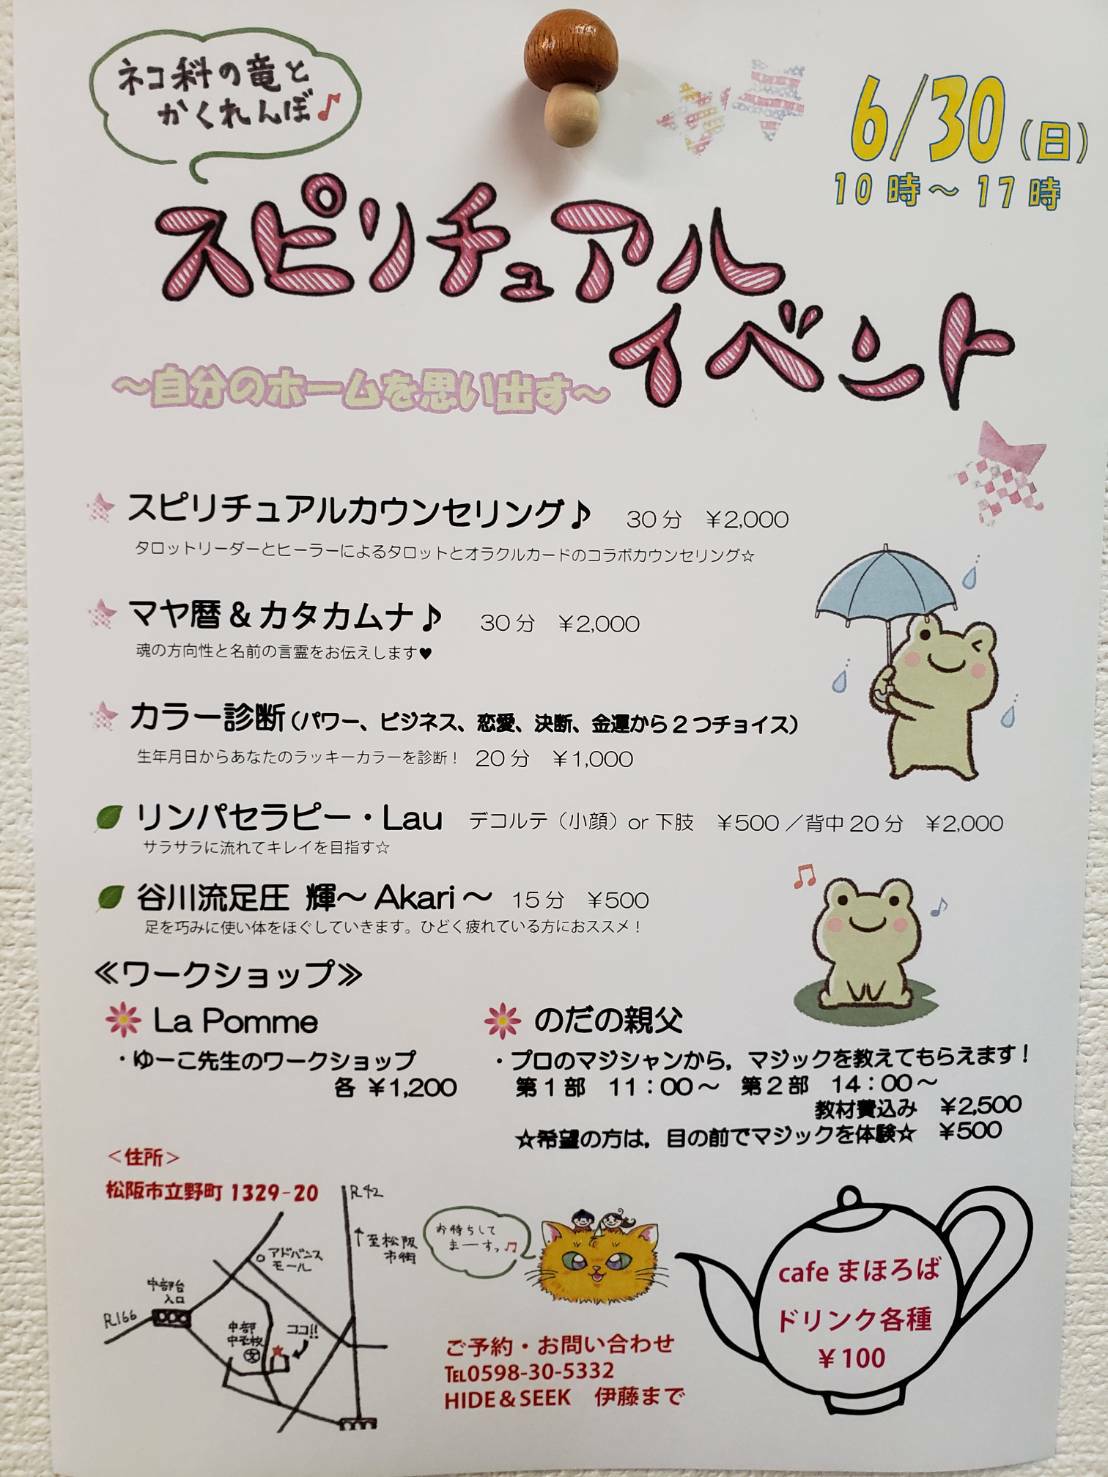 ネコ科の竜と
かくれんぼ♪
6/30(日)
10時～17時
スピリチュアル
イベント
～自分のホームを思い出す～
スピリチュアルカウンセリング♪ 30分 ¥2,000
タロットリーダーとヒーラーによるタロットとオラクルカードのコラボカウンセリング☆
マヤ暦&カタカムナ♪ 30分 ¥2,000
魂の方向性と名前の言霊をお伝えします♥
カラー診断(パワー、ビジネス、恋愛、決断、金運から2つチョイス)
生年月日からあなたのラッキーカラーを診断! 20分 ¥1,000
リンパセラピー・Lau デコルテ(小顔)or下肢 ¥500/背中20分 ¥2,000
サラサラに流れてキレイを目指す☆
谷川流足圧 輝～Akari～ 15分 ¥500
足を巧みに使い体をほぐしていきます。ひどく疲れている方におススメ!
≪ワークショップ≫
La Pomme
・ゆーこ先生のワークショップ
各 ¥1,200
のだの親父
・プロのマジシャンから,マジックを教えてもらえます!
第1部 11:00～ 第2部 14:00～
教材費込み ¥2,500
☆希望の方は,目の前でマジックを体験☆ ¥500
<住所>
松阪市立野町1329-20
R.42
↑至松阪
市街
アドバンス
モール
中部台
入口
R.166
中部
中学校
文
ココ!!
お待ちして
まーすっ♫
ご予約・お問い合わせ
TEL0598-30-5332
HIDE&SEEK 伊藤まで
cafe まほろば
ドリンク各種
¥100